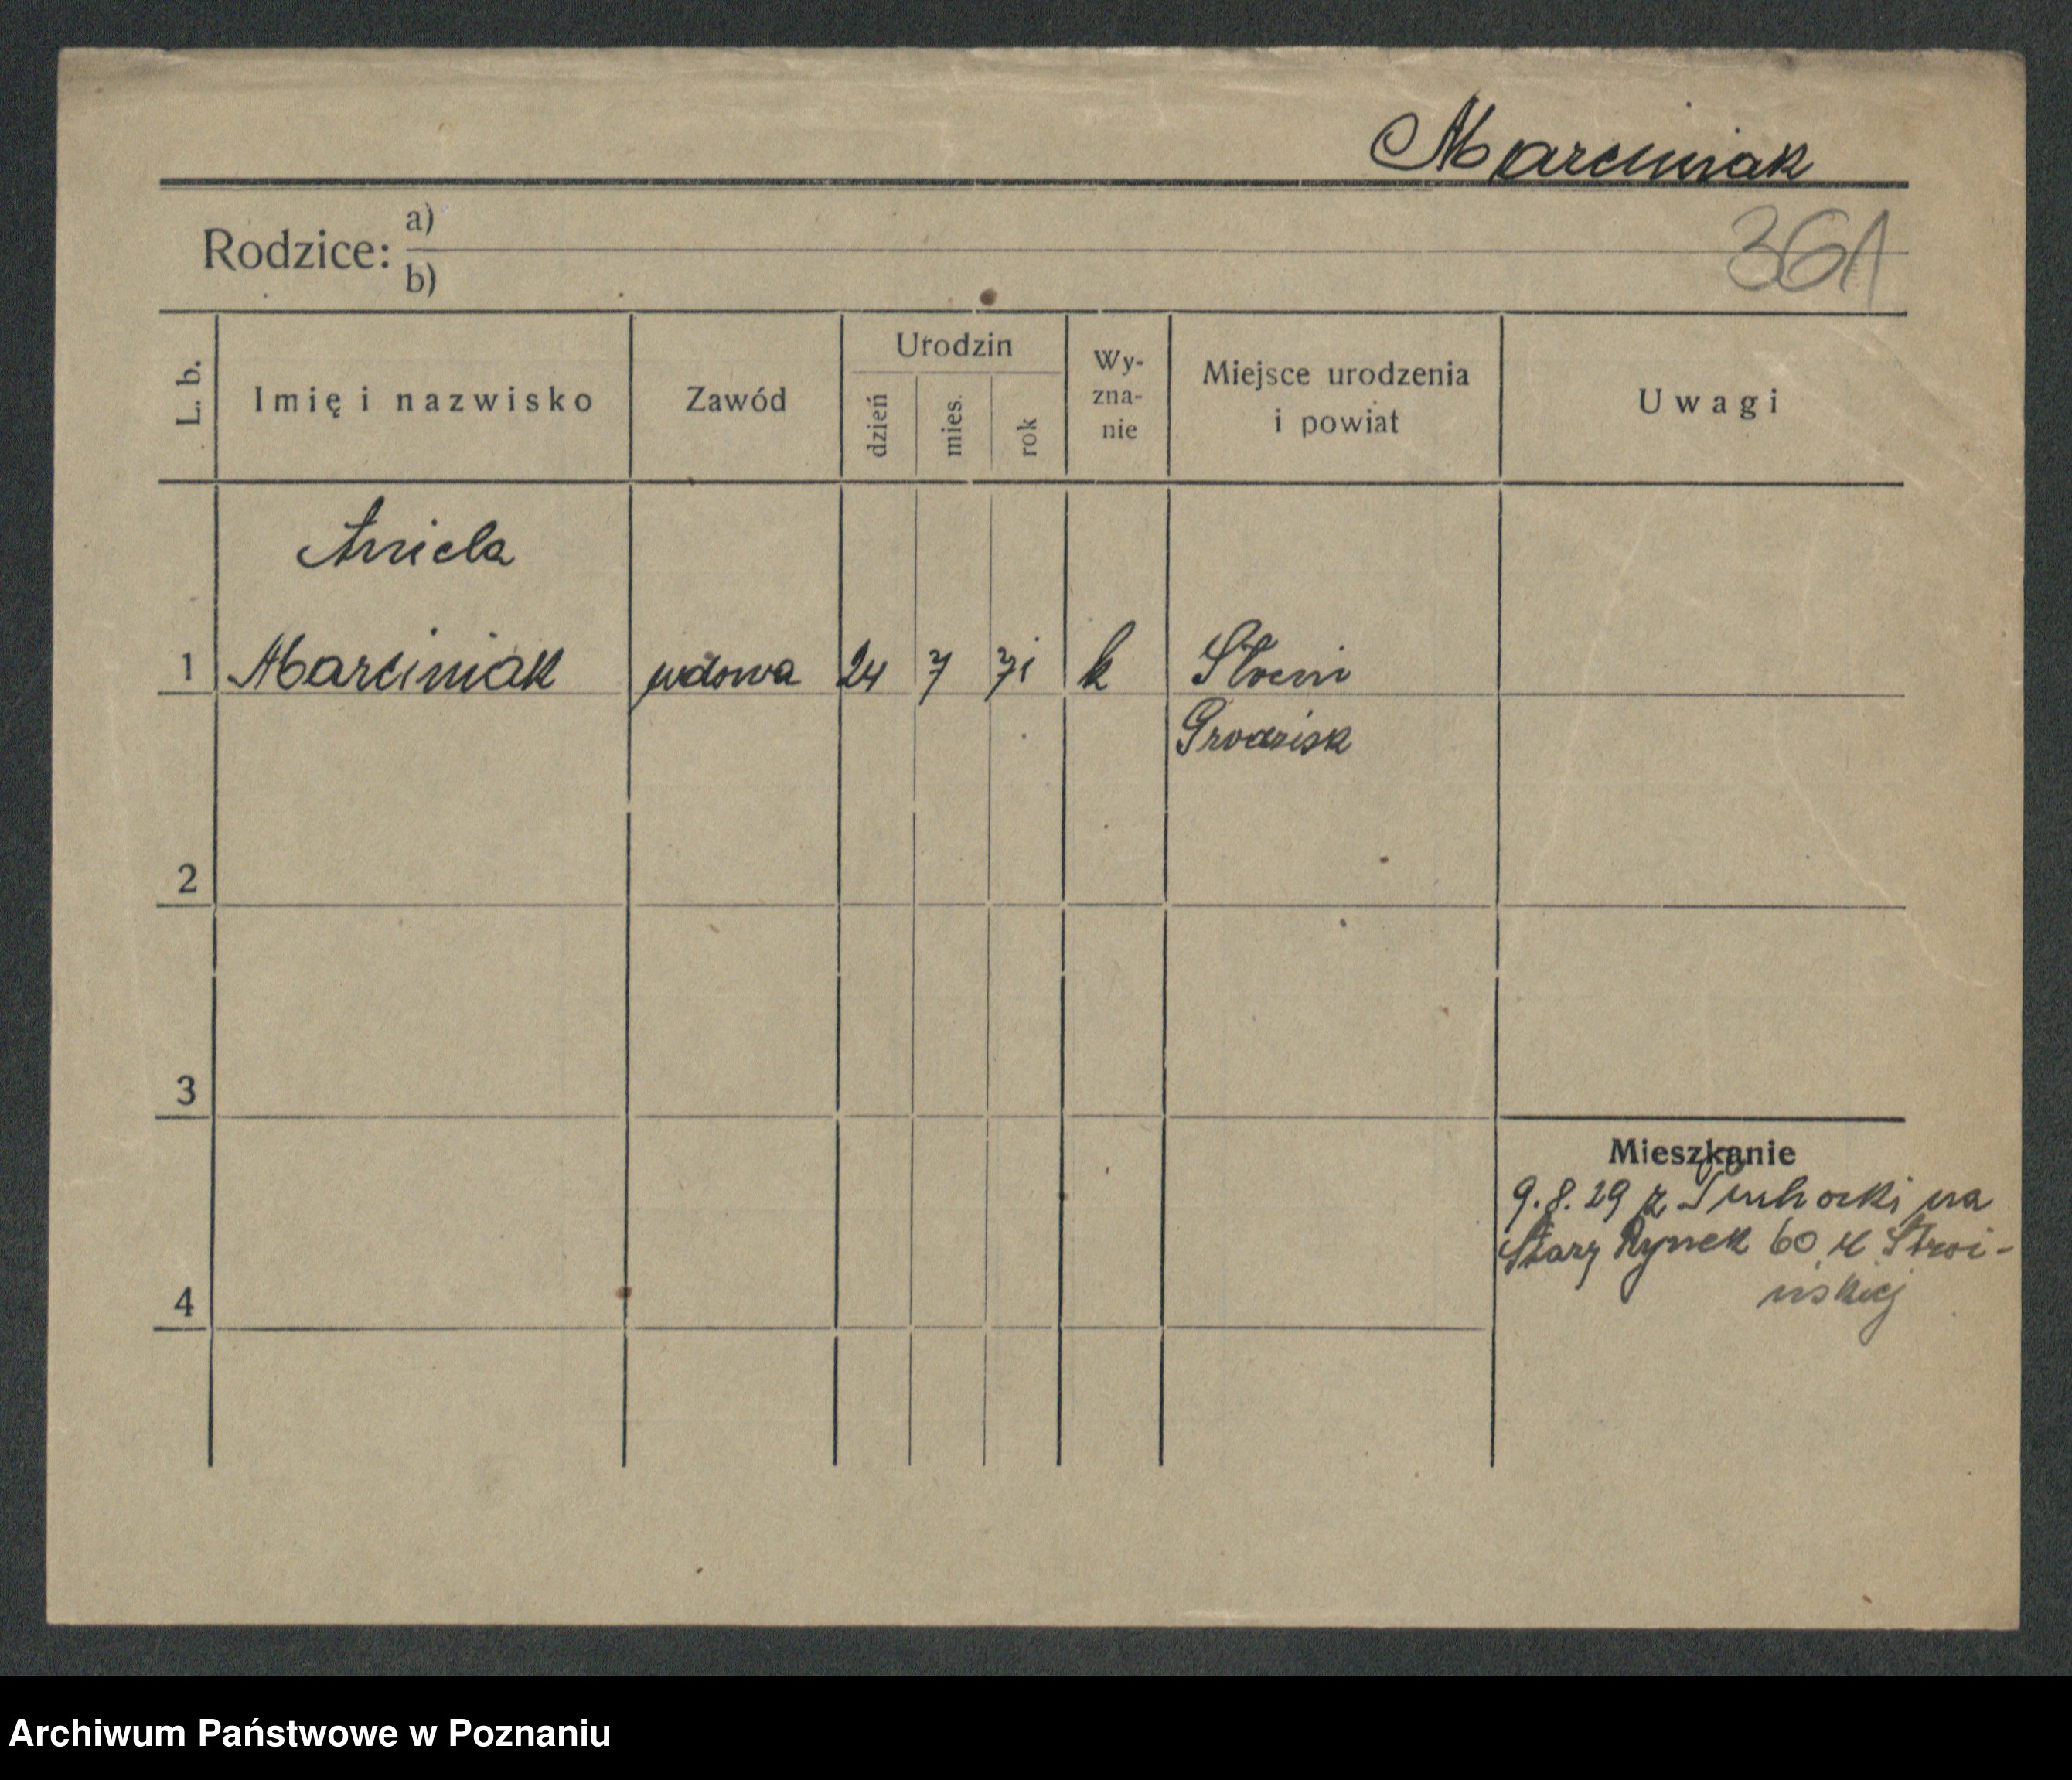 Marciniak
Rodzice: a)
b)
361
L. b.
Imię i nazwisko
Zawód
Urodzin
dzień
mies.
rok
Wy-
zna-
nie
Miejsce urodzenia
i powiat
Uwagi
Aniela
1 Marciniak wdowa 24 7 71 k Słocin
Grodzisk
2
3
Mieszkanie
9.8.29 z Suchorki na
Stary Rynek 60 u Stroi-
ńskiej
4
Archiwum Państwowe w Poznaniu